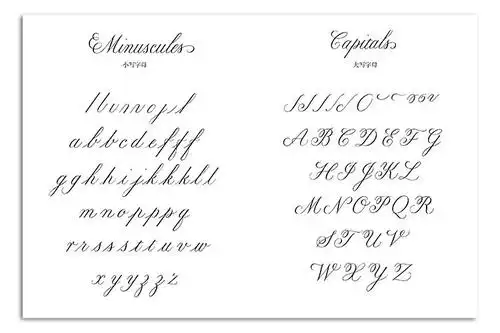 Minuscules
小写字母
a b c d e f f f
g g h h i j k k k l l
m n o p p p q
r r s s s t t u v w
x y y z z z
Capitals
大写字母
A B C D E F G
H I J K L
M N O P Q R
S T U V
W X Y Z